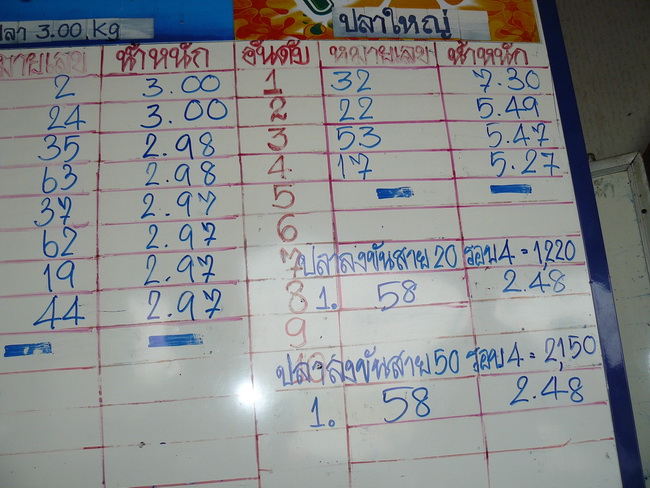 ปลา 3.00 kg ปลาใหญ่
หมายเลข น้ำหนัก อันดับ หมายเลข น้ำหนัก
2 3.00 1 32 7.30
24 3.00 2 22 5.49
35 2.98 3 53 5.47
63 2.98 4 17 5.27
37 2.97 5
62 2.97 6
19 2.97 7 ปลาลงขันสาย 20 รอบ 4 = 1,220
44 2.97 8 1. 58 2.48
9
10 ปลาลงขันสาย 50 รอบ 4 = 2,150
1. 58 2.48